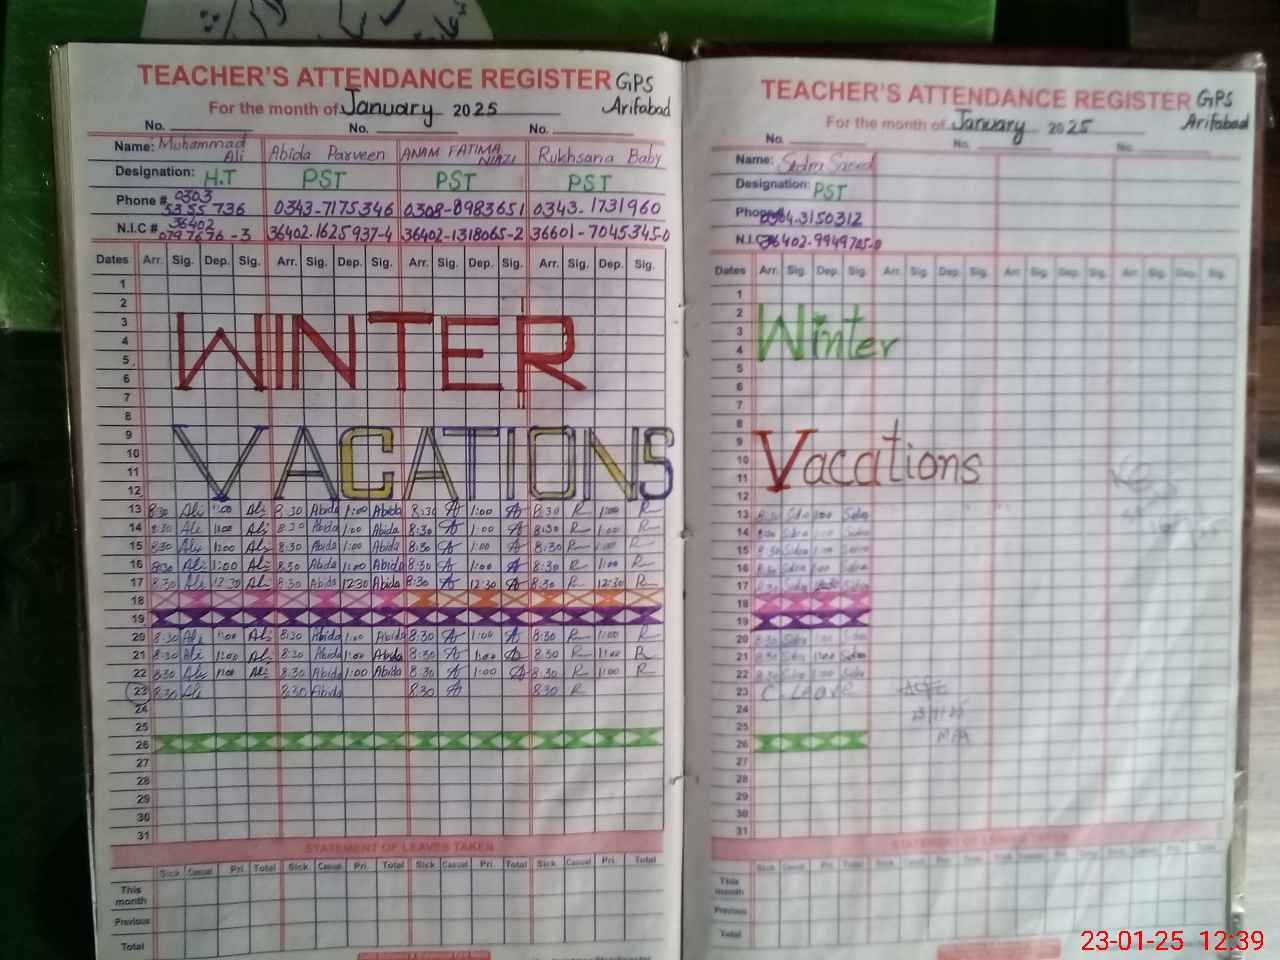 TEACHER'S ATTENDANCE REGISTER GPS
For the month of January 2025 Arifabad
No. No. No.
Name: Muhammad Ali Abida Parveen ANAM FATIMA NIAZI Rukhsana Baby
Designation: H.T PST PST PST
Phone # 0303 5355736 0343-7175346 0308-8983651 0343-1731960
N.I.C # 36402 0797676-3 36402-1625937-4 36402-1318065-2 36601-7045345-0
Dates Arr. Sig. Dep. Sig. Arr. Sig. Dep. Sig. Arr. Sig. Dep. Sig. Arr. Sig. Dep. Sig.
1
2
3
4
5
6
7
WINTER
8
9
10
11
12
VACATIONS
13 8:30 Ali 1:00 Ali 8:30 Abida 1:00 Abida 8:30 A 1:00 A 8:30 R 1:00 R
14 8:30 Ali 1:00 Ali 8:30 Abida 1:00 Abida 8:30 A 1:00 A 8:30 R 1:00 R
15 8:30 Ali 1:00 Ali 8:30 Abida 1:00 Abida 8:30 A 1:00 A 8:30 R 1:00 R
16 8:30 Ali 1:00 Ali 8:30 Abida 1:00 Abida 8:30 A 1:00 A 8:30 R 1:00 R
17 8:30 Ali 12:30 Ali 8:30 Abida 12:30 Abida 8:30 A 12:30 A 8:30 R 12:30 R
18
19
20 8:30 Ali 1:00 Ali 8:30 Abida 1:00 Abida 8:30 A 1:00 A 8:30 R 1:00 R
21 8:30 Ali 1:00 Ali 8:30 Abida 1:00 Abida 8:30 A 1:00 A 8:30 R 1:00 R
22 8:30 Ali 1:00 Ali 8:30 Abida 1:00 Abida 8:30 A 1:00 A 8:30 R 1:00 R
23 8:30 Ali 8:30 Abida 8:30 A 8:30 R
24
25
26
27
28
29
30
31
STATEMENT OF LEAVES TAKEN
Sick Casual Pri. Total Sick Casual Pri. Total Sick Casual Pri. Total Sick Casual Pri. Total
This month
Previous
Total
TEACHER'S ATTENDANCE REGISTER GPS
For the month of January 2025 Arifabad
No. No. No.
Name:
Designation: PST
Phone # 3150312
N.I.C
Dates Arr. Sig. Dep. Sig. Arr. Sig. Dep. Sig. Arr. Sig. Dep. Sig. Arr. Sig. Dep. Sig.
1
2
3
4
Winter
5
6
7
8
9
10
11
Vacations
12
13 8:30 Sidra 1:00 Sidra
14 8:30 Sidra 1:00 Sidra
15 8:30 Sidra 1:00 Sidra
16 8:30 Sidra 1:00 Sidra
17 8:30 Sidra Sidra
18
19
20 8:30 Sidra 1:00 Sidra
21 8:30 Sidra 1:00 Sidra
22 8:30 Sidra 1:00 Sidra
23 C-Leave
24
25
26
27
28
29
30
31
STATEMENT OF LEAVES TAKEN
Sick Casual Pri. Total
This month
Previous
Total
23-01-25 12:39